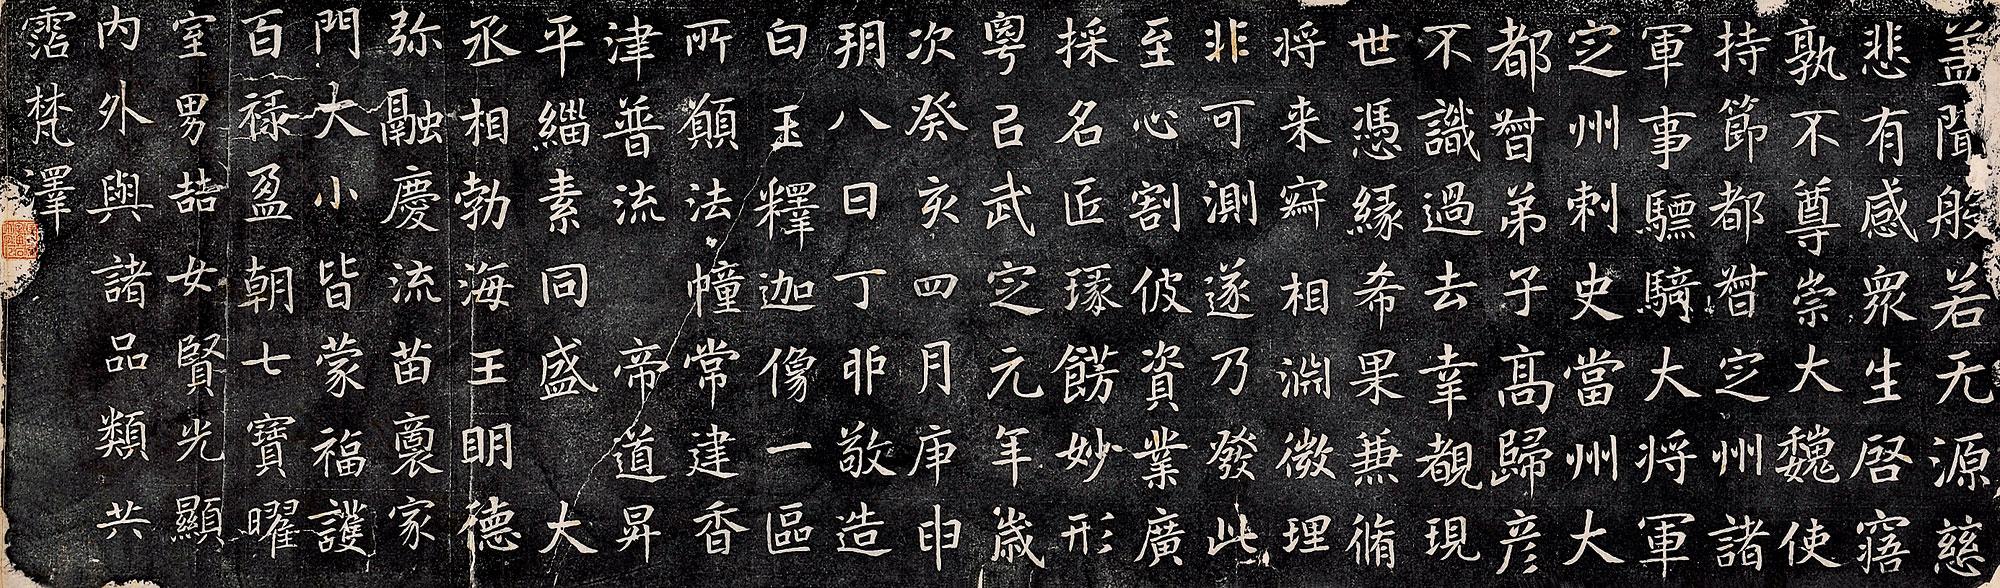 盖聞般若无源慈
悲有感衆生啓寤
孰不尊崇大魏使
持節都督定州諸
軍事驃騎大将軍
定州刺史當州大
都督弟子髙歸彦
不識過去幸覩現
世憑緣希果兼脩
将来寂相淵微理
非可測遂乃發此
至心割彼資業廣
採名匠琢餝妙形
粵己武定元年歲
次癸亥四月庚申
朔八日丁卯敬造
白玉釋迦像一區
所願法幢常建香
津普流 帝道昇
平緇素同盛 大
丞相勃海王明德
弥融慶流苗裔家
門大小皆蒙福護
百禄盈朝七寶曜
室男喆女賢光顯
内外與諸品類共
霑梵澤